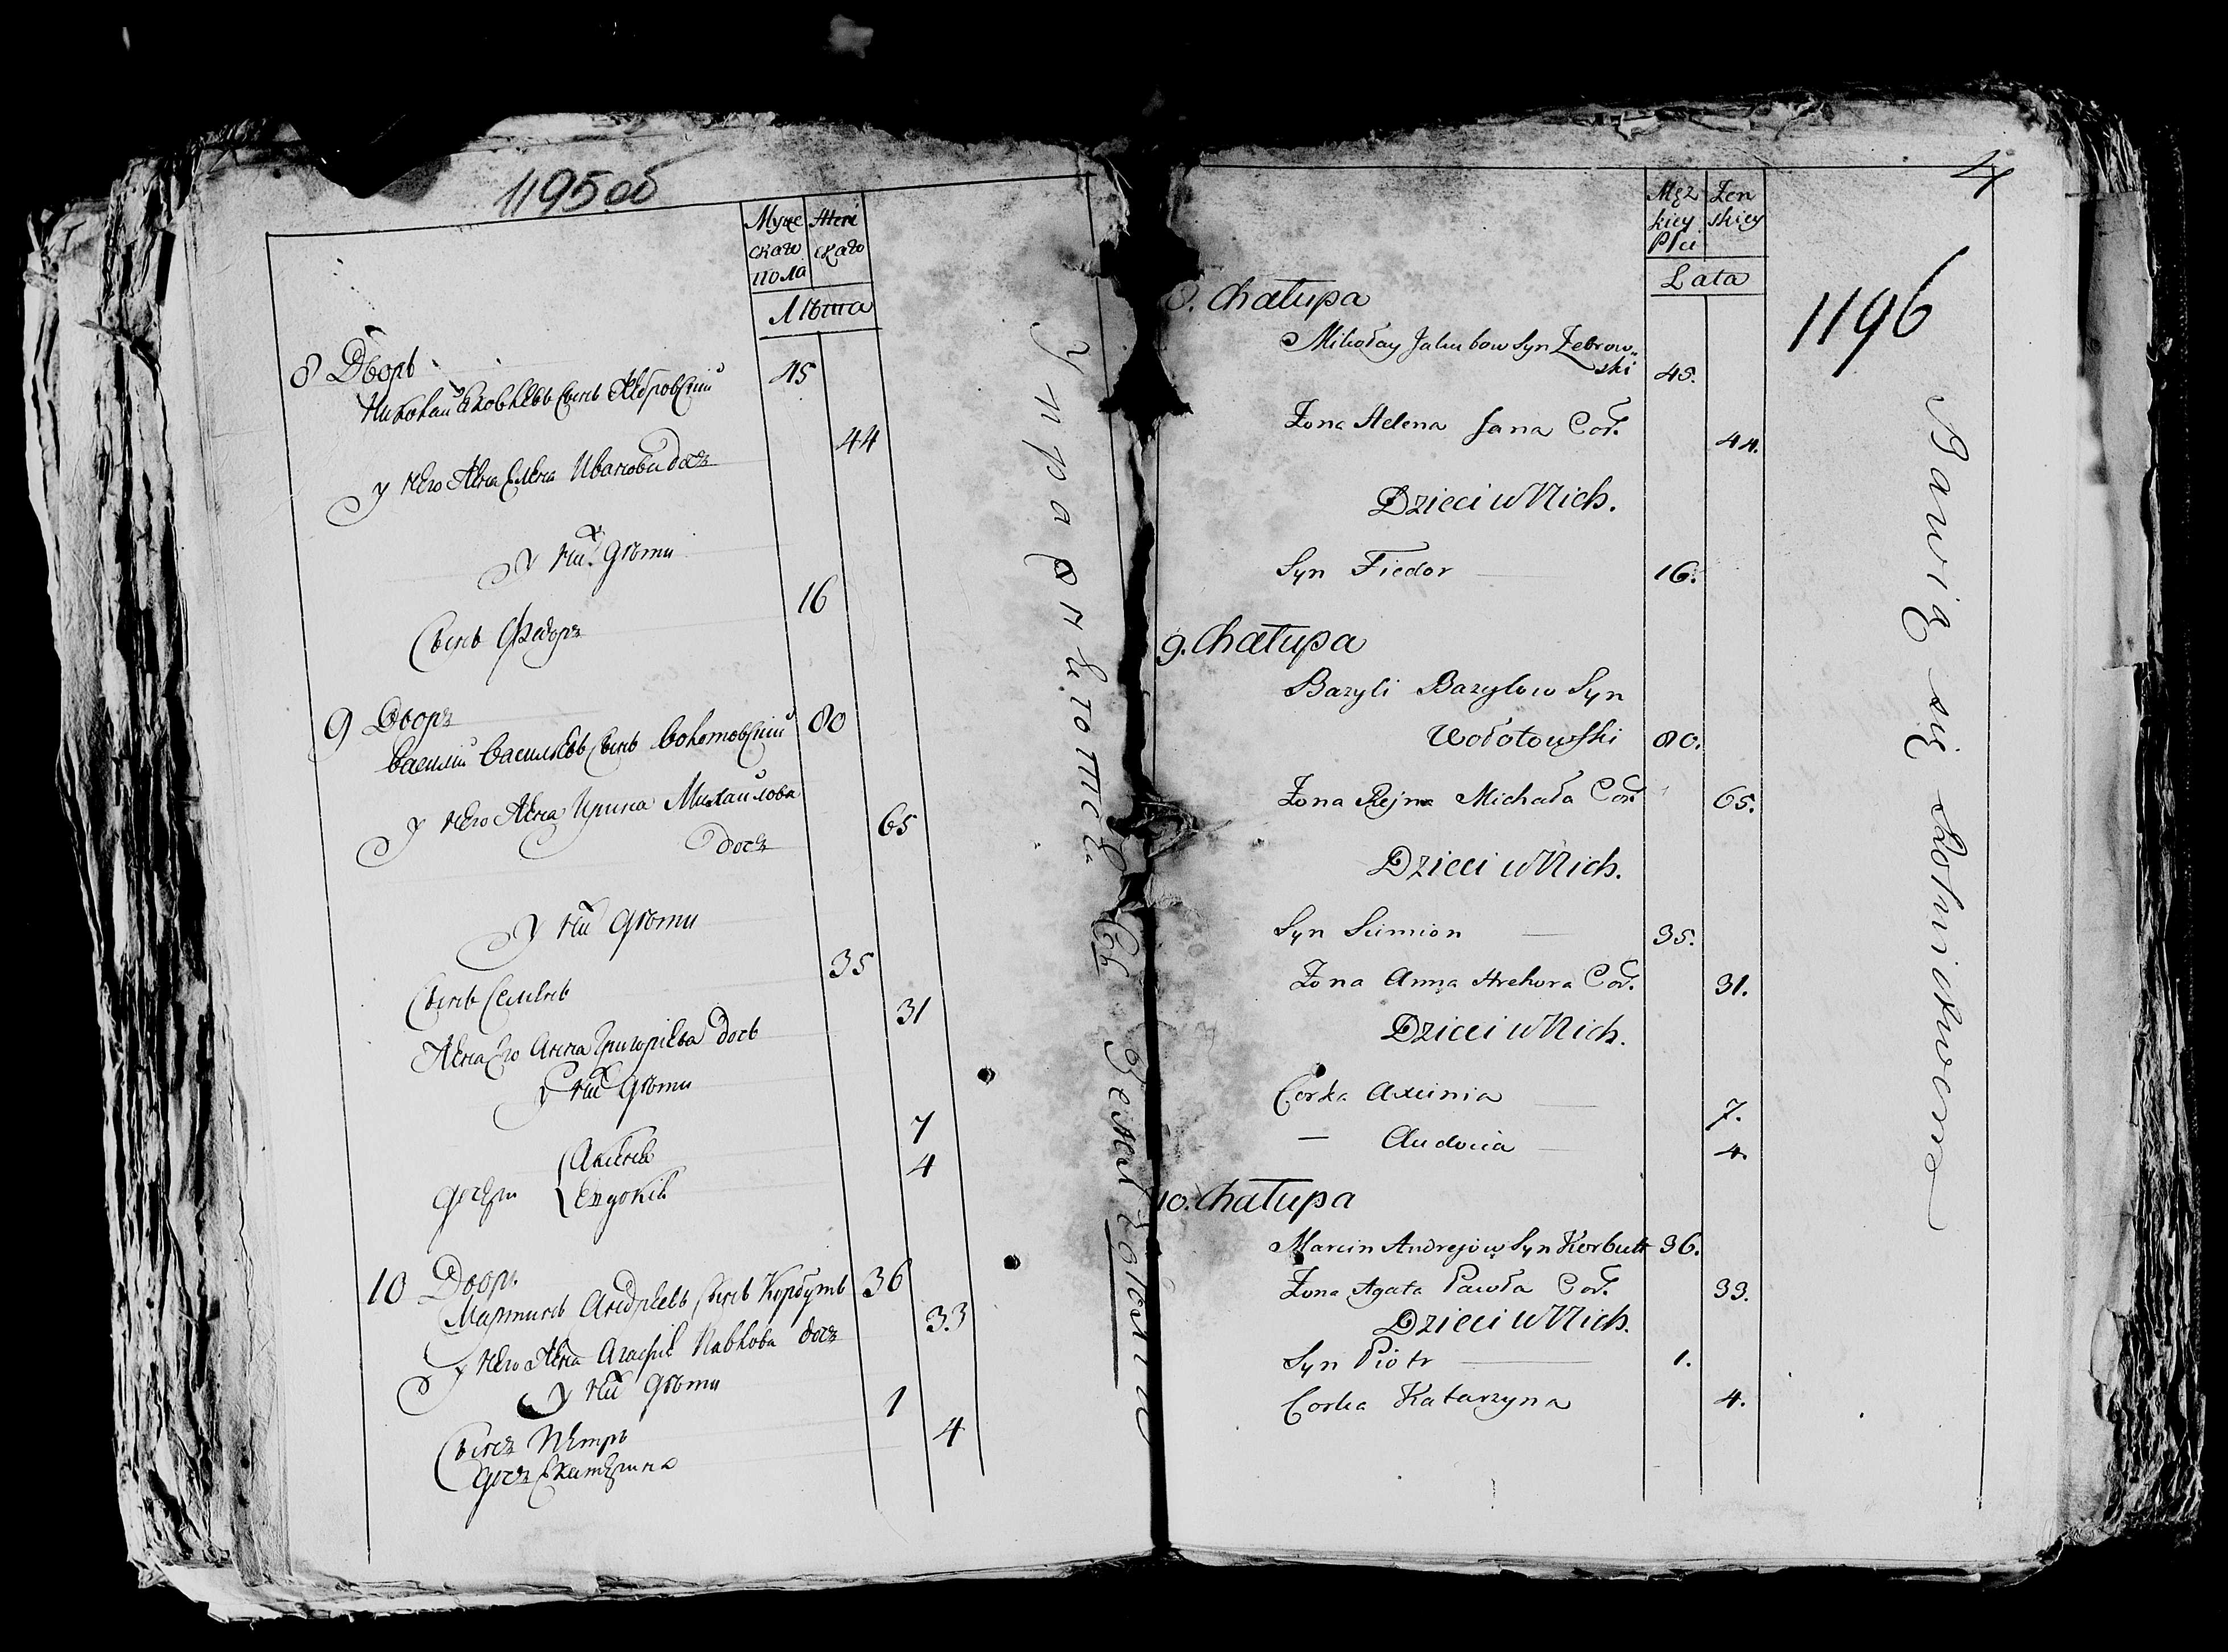 1195 об
Муже Жен
скаго скаго
пола
Лѣта
8 Дворъ
Николай Яковлевъ сынъ Жебровский 45
У него жена Елена Иванова дочь 44
У них дѣти
Сынъ Федоръ 16
9 Дворъ
Василий Васильевъ сынъ Волотовский 80
У него жена Ирина Михайлова
дочь 65
У них дѣти
Сынъ Семенъ 35
Жена Его Анна Григориева дочь 31
У них дѣти
дочери Аксинья 7
Евдокия 4
10 Дворъ
Мартинъ Андреевъ сынъ Корбутъ 36
У него жена Агафия Павлова дочь 33
У них дѣти
Сынъ Петръ 1
дочь Екатерина 4
4
1196
Męz Zen
kiey skiey
Płci
Lata
8. Chałupa
Mikołay Jakubow Syn Żebrow„
ski 45.
Żona Helena Jana Cor. 44.
Dzieci u Nich.
Syn Fiedor 16.
9. Chałupa
Bazyli Bazylow Syn
Wołotowski 80.
Żona Rejna Michała Cor. 65.
Dzieci u Nich.
Syn Siemion 35.
Żona Anna Hrehora Cor. 31.
Dzieci u Nich.
Corka Axinia 7.
— Audocia 4.
10. Chałupa
Marcin Andrejow Syn Korbutt 36.
Żona Agata Pawła Cor. 33.
Dzieci u Nich.
Syn Piotr 1.
Corka Katarzyna 4.
Bawią się Rolnictwem